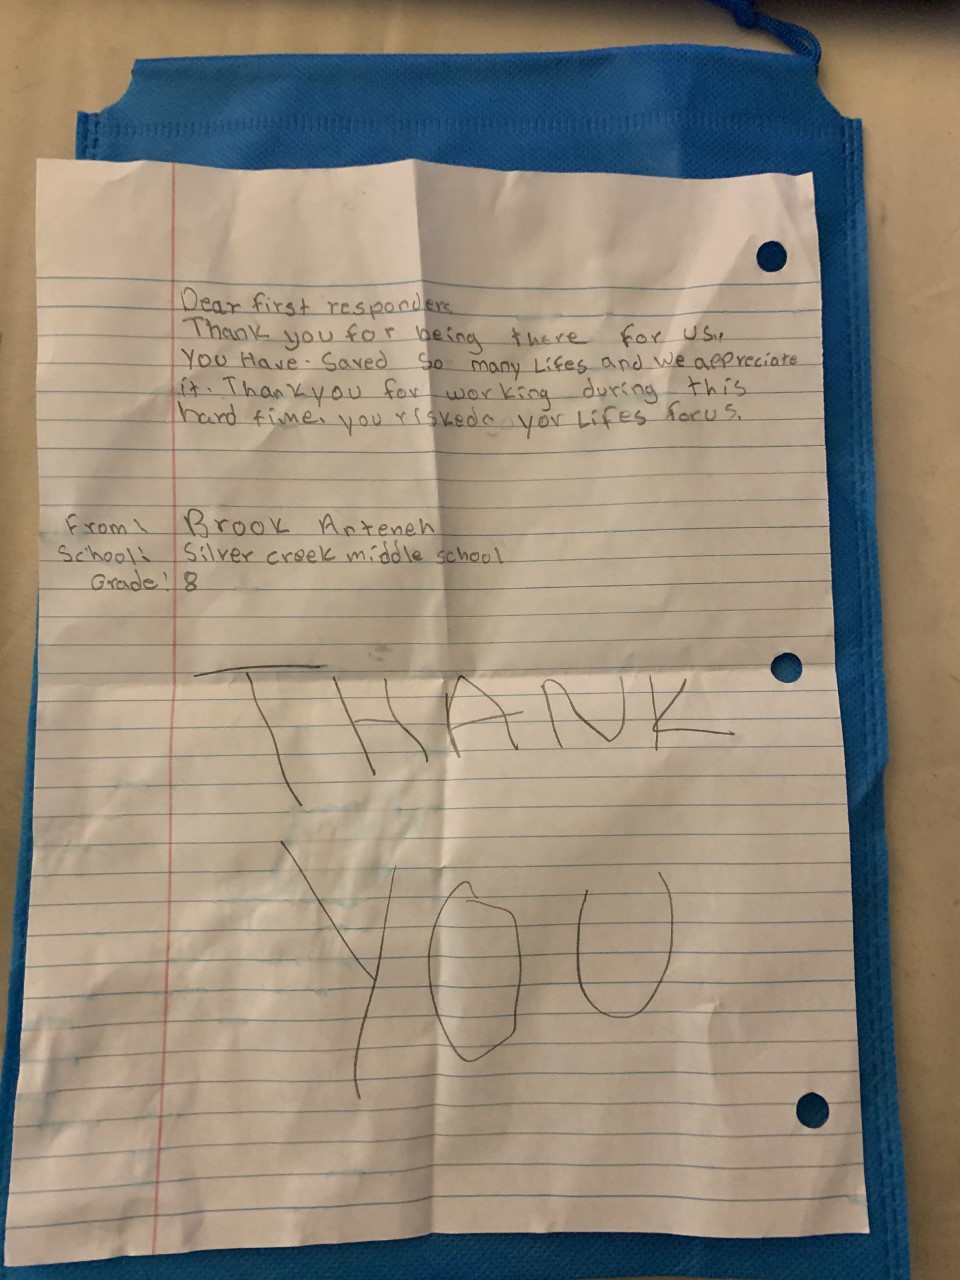 Dear first responders
Thank you for being there for us.
You Have. Saved so many Lifes and we appreciate
it. Thank you for working during this
hard time. you risked yor Lifes for us.
From: Brook Anteneh
School: Silver creek middle school
Grade: 8
THANK
YOU